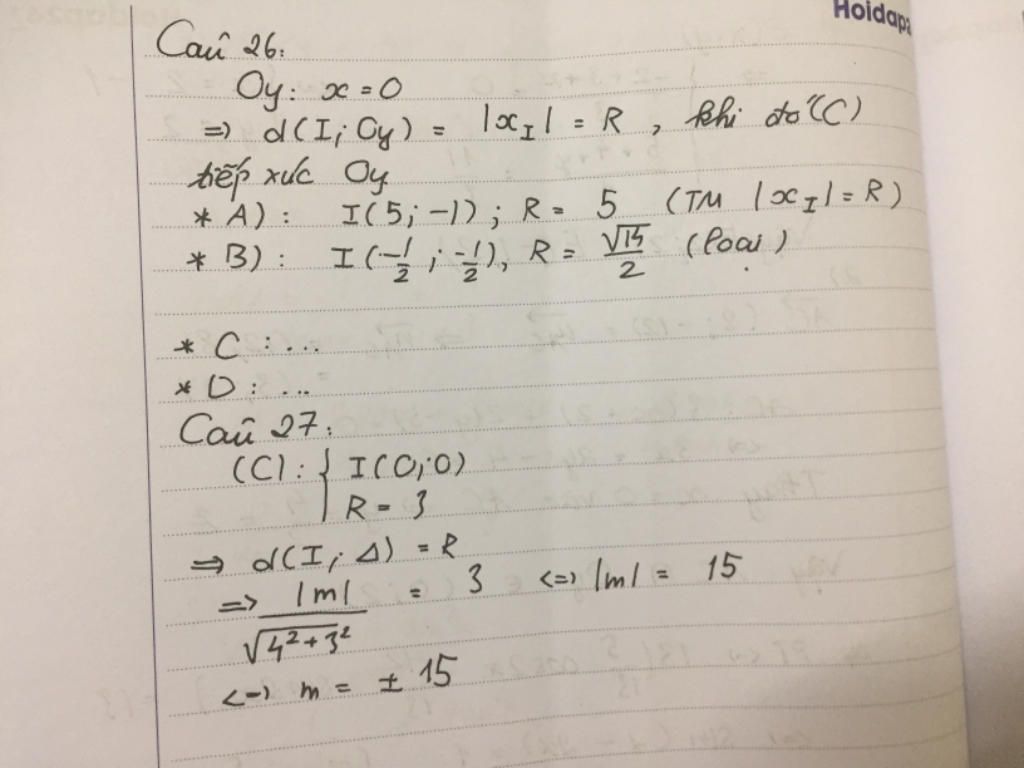 Hoidapa
Câu 26:
Oy: x = 0
=> d(I; Oy) = |x_I| = R, khi đó (C)
tiếp xúc Oy
* A): I(5; -1); R = 5 (TM |x_I| = R)
* B): I(-1/2; -1/2), R = √14/2 (loại)
* C: ...
* D: ...
Câu 27:
(C): { I(0; 0)
R = 3
=> d(I; Δ) = R
=> |m|/√4²+3² = 3 <=> |m| = 15
<=> m = ± 15